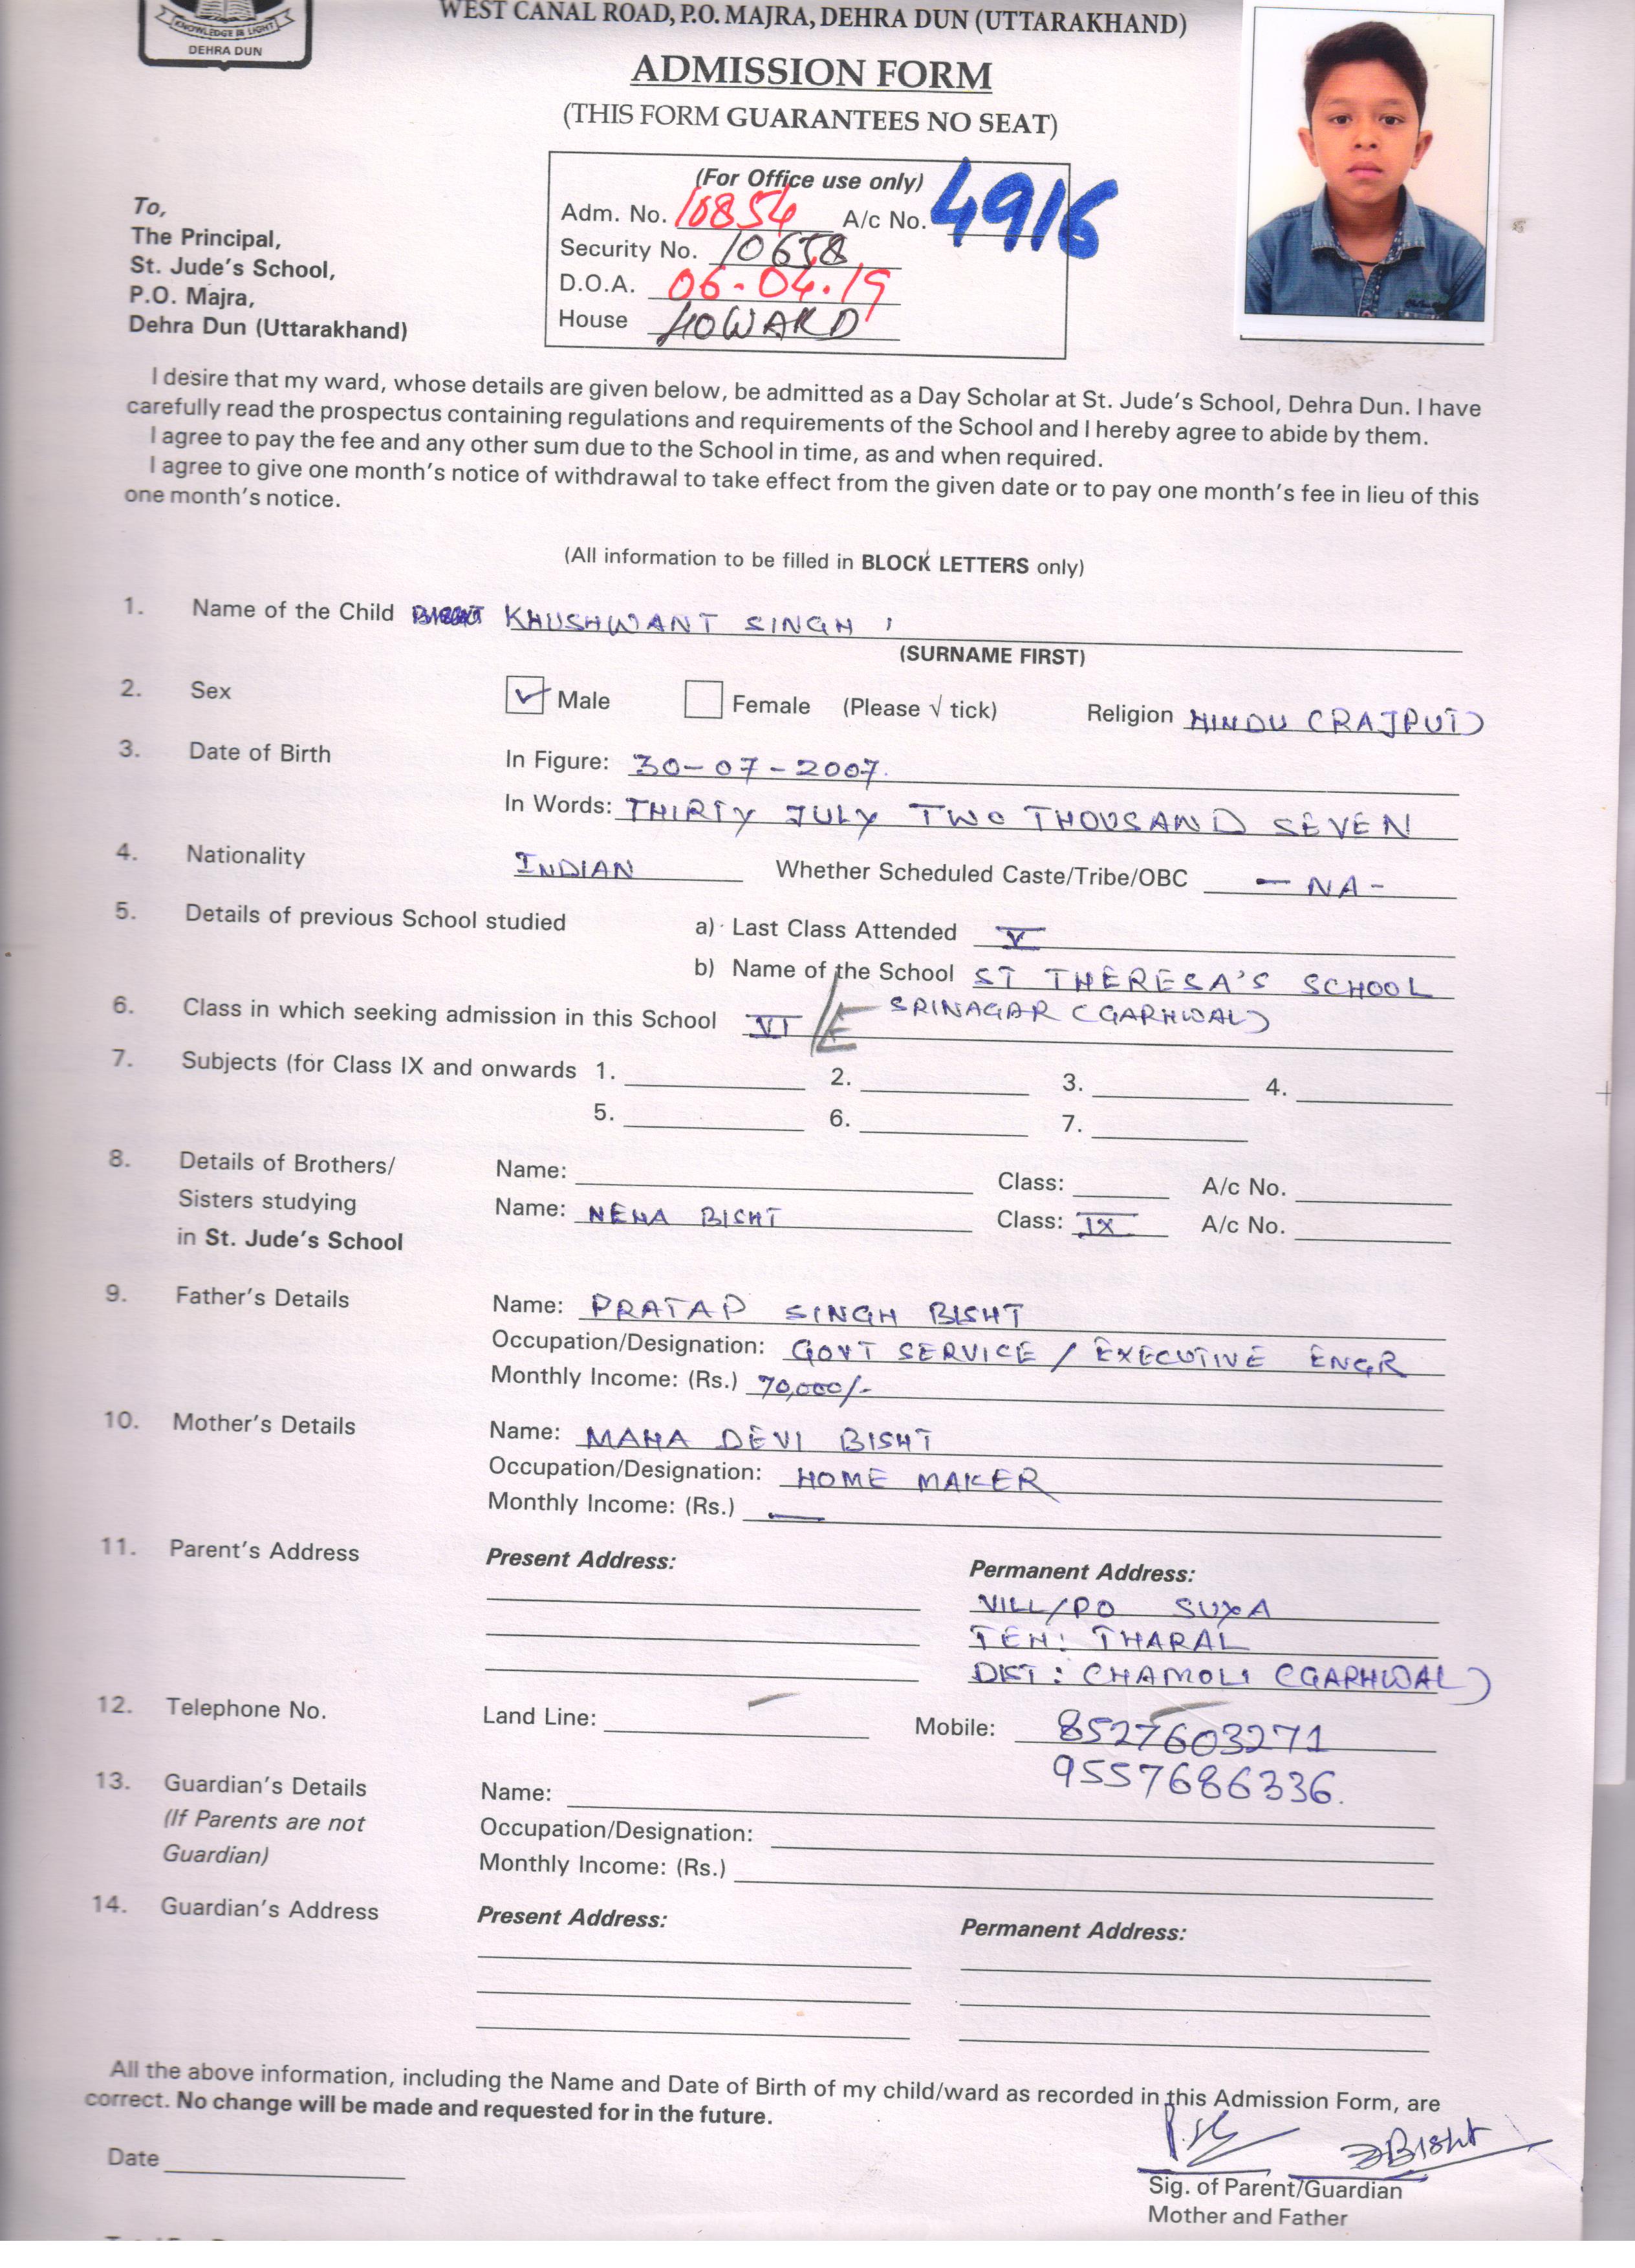 KNOWLEDGE IS LIGHT
DEHRA DUN
WEST CANAL ROAD, P.O. MAJRA, DEHRA DUN (UTTARAKHAND)
ADMISSION FORM
(THIS FORM GUARANTEES NO SEAT)
(For Office use only)
Adm. No. 10854 A/c No. 4916
Security No. 10658
D.O.A. 06-04-19
House HOWARD
To,
The Principal,
St. Jude's School,
P.O. Majra,
Dehra Dun (Uttarakhand)
I desire that my ward, whose details are given below, be admitted as a Day Scholar at St. Jude's School, Dehra Dun. I have
carefully read the prospectus containing regulations and requirements of the School and I hereby agree to abide by them.
I agree to pay the fee and any other sum due to the School in time, as and when required.
I agree to give one month's notice of withdrawal to take effect from the given date or to pay one month's fee in lieu of this
one month's notice.
(All information to be filled in BLOCK LETTERS only)
1. Name of the Child KHUSHWANT SINGH
(SURNAME FIRST)
2. Sex Male Female (Please √ tick) Religion HINDU (RAJPUT)
3. Date of Birth In Figure: 30-07-2007.
In Words: THIRTY JULY TWO THOUSAND SEVEN
4. Nationality INDIAN Whether Scheduled Caste/Tribe/OBC - NA -
5. Details of previous School studied a) Last Class Attended V
b) Name of the School ST THERESA'S SCHOOL
SRINAGAR (GARHWAL)
6. Class in which seeking admission in this School VI
7. Subjects (for Class IX and onwards 1. 2. 3. 4.
5. 6. 7.
8. Details of Brothers/ Name: Class: A/c No.
Sisters studying Name: NEHA BISHT Class: IX A/c No.
in St. Jude's School
9. Father's Details Name: PRATAP SINGH BISHT
Occupation/Designation: GOVT SERVICE / EXECUTIVE ENGR
Monthly Income: (Rs.) 70,000/-
10. Mother's Details Name: MAHA DEVI BISHT
Occupation/Designation: HOME MAKER
Monthly Income: (Rs.) —
11. Parent's Address Present Address: Permanent Address:
VILL/PO SUYA
TEH: THARAL
DIST: CHAMOLI (GARHWAL)
12. Telephone No. Land Line: Mobile: 8527603271
9557686336.
13. Guardian's Details Name:
(If Parents are not Occupation/Designation:
Guardian) Monthly Income: (Rs.)
14. Guardian's Address Present Address: Permanent Address:
All the above information, including the Name and Date of Birth of my child/ward as recorded in this Admission Form, are
correct. No change will be made and requested for in the future.
Bisht
Date
Sig. of Parent/Guardian
Mother and Father